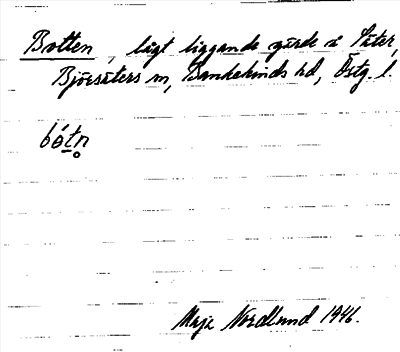 Botten, lågt liggande gärde i Säter,
Björsäters sn, Bankekinds hd, Östg. l.
bótn̥
Maja Nordlund 1946.